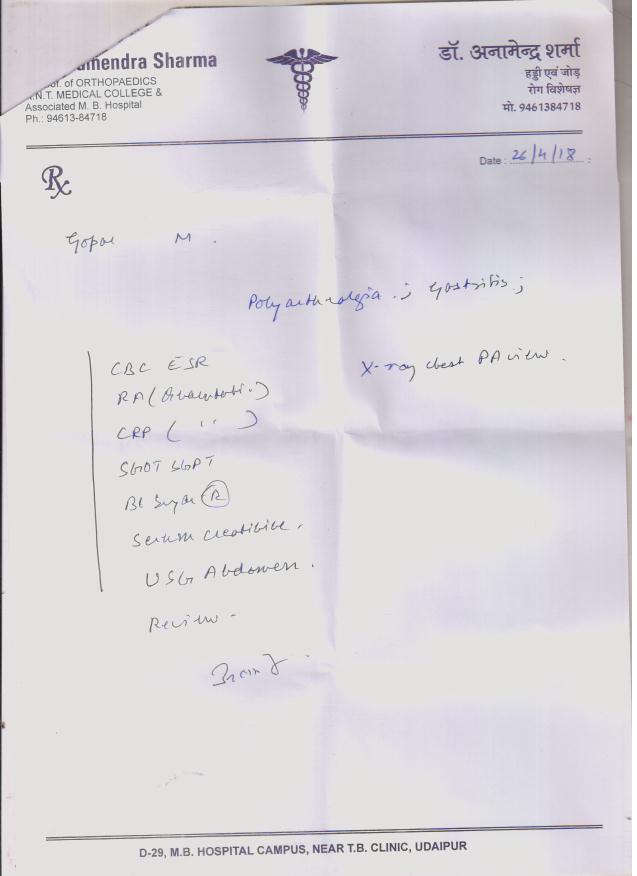 amendra Sharma
of. of ORTHOPAEDICS
.N.T. MEDICAL COLLEGE &
Associated M. B. Hospital
Ph.: 94613-84718
डॉ. अनामेन्द्र शर्मा
हड्डी एवं जोड़
रोग विशेषज्ञ
मो. 9461384718
Date : 26/4/18
Rx
Gopal M.
Polyarthralgia ; Gastritis ;
X-ray chest PA view.
CBC ESR
RA (Quantitati.)
CRP ( '' )
SGOT SGPT
Bl Sugar (R)
Serum Creatinine.
USG Abdomen.
Review -
D-29, M.B. HOSPITAL CAMPUS, NEAR T.B. CLINIC, UDAIPUR